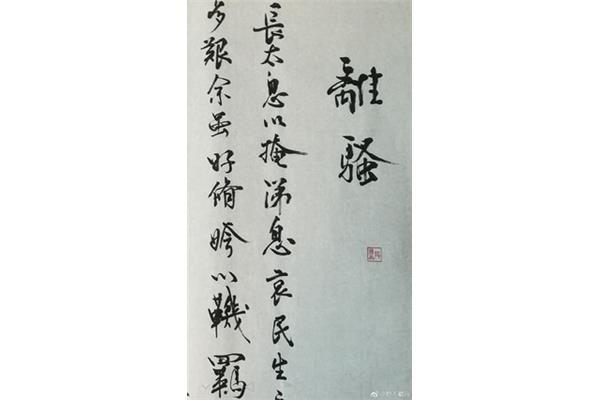 離騷
長太息以掩涕息哀民生
多艱余虽好脩姱以鞿羈